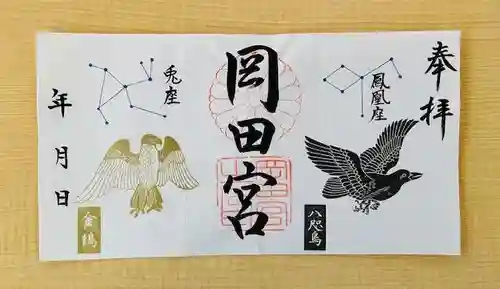 奉拝
鳳凰座
八咫烏
岡田宮
兎座
金鵄
年月日